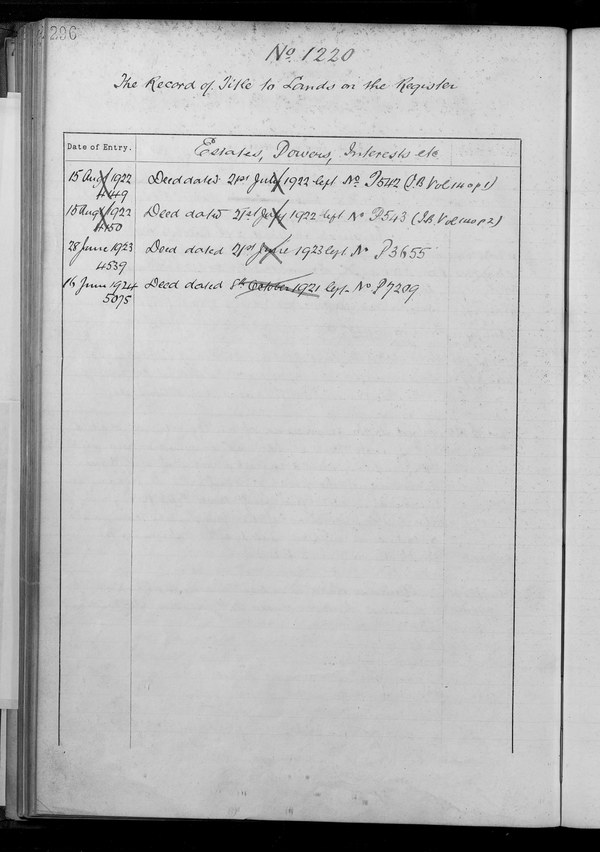 296
No. 1220
The Record of Title to Lands on the Register
Date of Entry.
Estates, Powers, Interests etc
15 Augt 1922 Deed dated 21st July 1922 left No. P542 (I.B Vol 140 p 1)
4149
15 Augt 1922 Deed dated 21st July 1922 left No P543 (I.B Vol 140 p 2)
4150
28 June 1923 Deed dated 21st June 1923 left No P3655
4539
16 June 1924 Deed dated 8th October 1921 left No P7209
5075